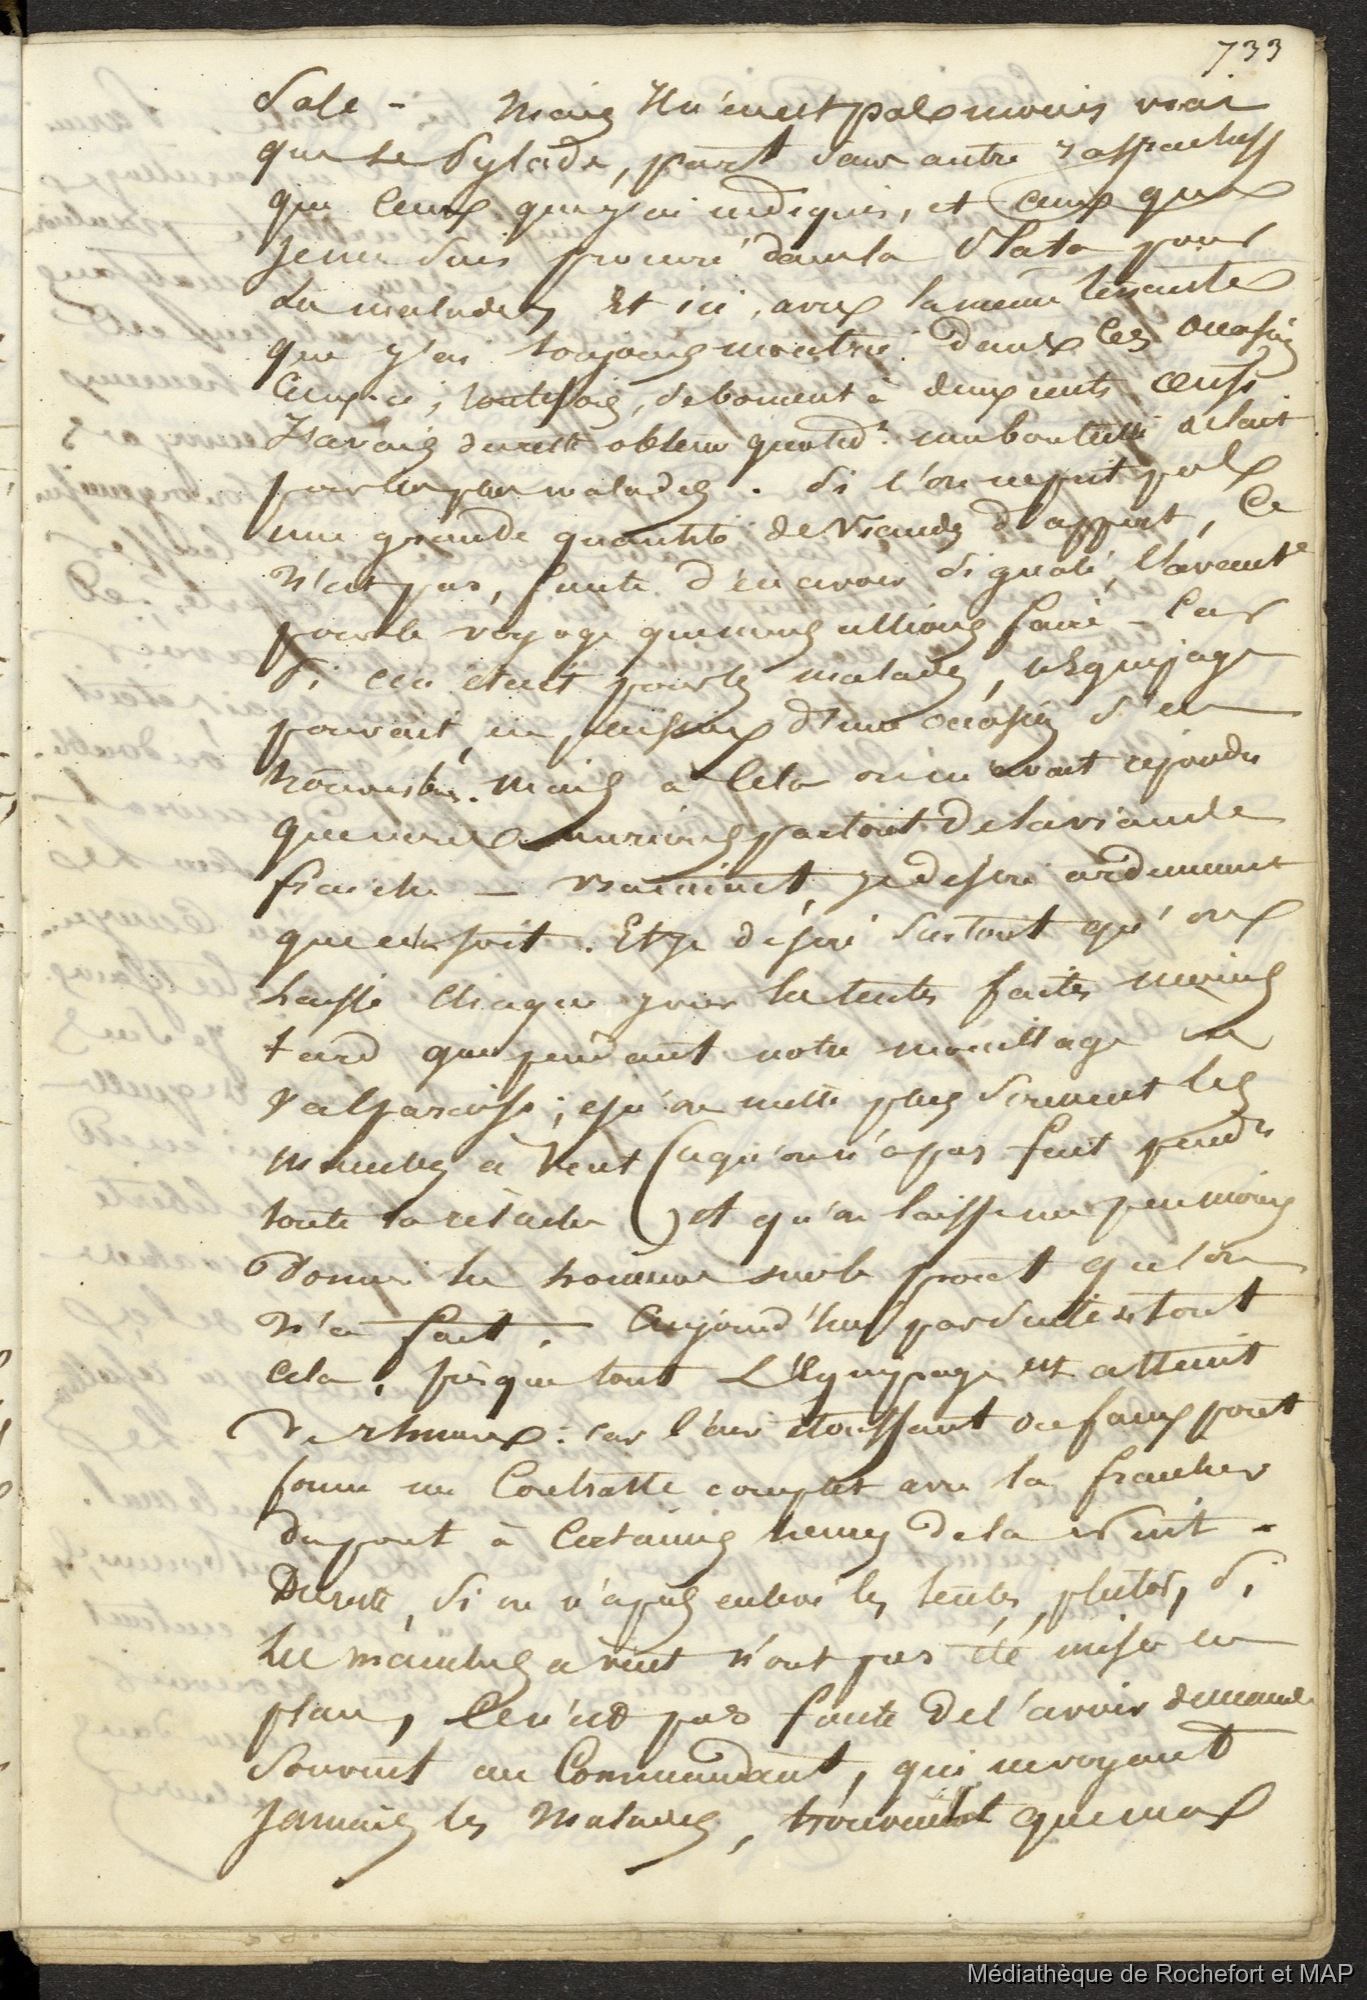 733
Sale - Mais Il n'en est pas moins vrai
que le Pylade, part sans autre
que ceux que j'ai indiqués, et ceux que
je me suis procuré dans la Plata pour
les malades, Et ici, avec la même
que j'ai toujours montrée dans ces occasions
Ceux-ci, toutefois, se bornent à deux cents œufs
J'avais du reste obtenu bouteilles de lait
pour les malades. Si l'on ne prit pas
une grande quantité de Viandes d'appert, Ce
n'est pas, faute d'en avoir signalé, l'avant.e
pour le voyage que nous allions faire - Car
Si ceci était pour les malades, l'Equipage
pouvait, en plus d'une occasion s'en
trouver bien. Mais à Cela on m'avait répondu
que nous aurions partout de la viande
fraiche - Vraiment, je désire ardemment
que cela soit. Et je désire surtout qu'on
laisse chaque jour les tentes faites moins
tard que pendant notre mouillage à
Valparaiso; qu'on mette plus souvent les
manches à Vent (ce qu'on n'a pas fait pendt
toute la relâche) et qu'on laisse un peu moins
Dormir les hommes sur le pont qu'on
n'a fait. Aujourd'hui par suite de tout
cela, presque tout L'Equipage est atteint
de rhumes: car l'air étouffant du faux pont
forme un Contraste complet avec la fraicheur
du pont à Certaines heures de la Nuit -
Du reste, si on n'a pas enlevé les tentes, plutôt, si
les manches à vent n'ont pas été mises en
plan, Ce n'est pas faute de l'avoir demandé
Souvent au Commandant, qui ne voyant
jamais les Malades, trouvait que nos
Médiathèque de Rochefort et MAP